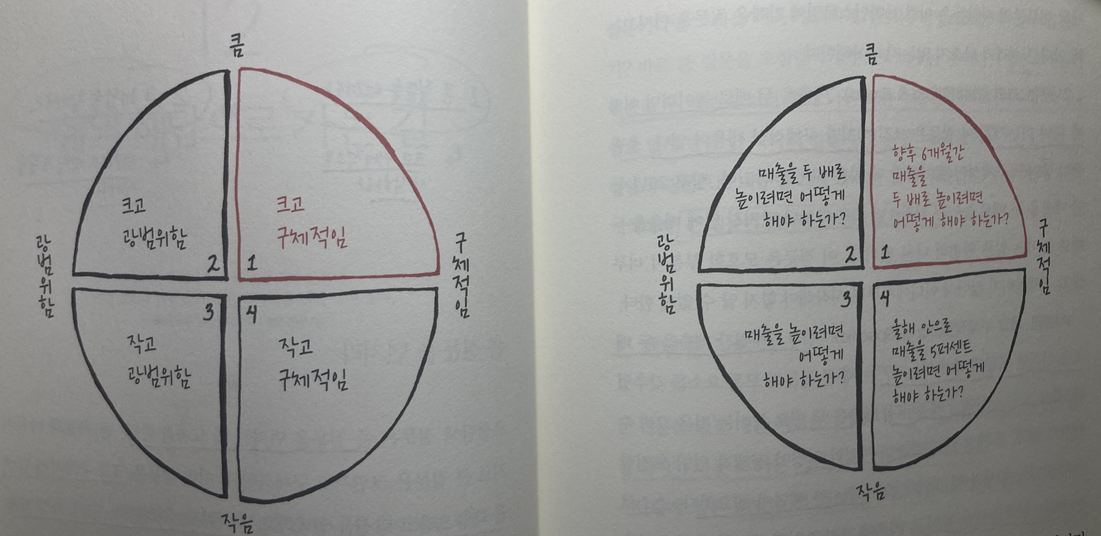 큼
크고
광범위함
2
크고
구체적임
1
광범위함
구체적임
3
작고
광범위함
4
작고
구체적임
작음
큼
매출을 두 배로
높이려면 어떻게
해야 하는가?
2
향후 6개월간
매출을
두 배로 높이려면
어떻게 해야 하는가?
1
광범위함
구체적임
3
매출을 높이려면
어떻게
해야 하는가?
4
올해 안으로
매출을 5퍼센트
높이려면 어떻게
해야 하는가?
작음